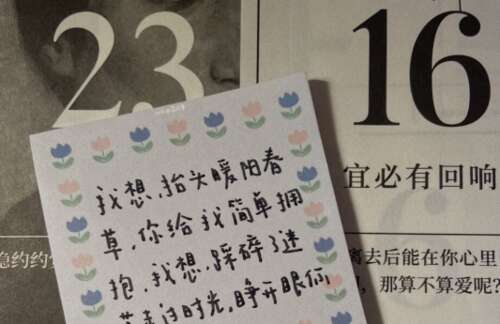 23
16
宜必有回响
我想,抬头暖阳春
草,你给我简单拥
抱,我想,踩碎了迷
时光,睁开眼你
隐约约
离去后能在你心里
那算不算爱呢?